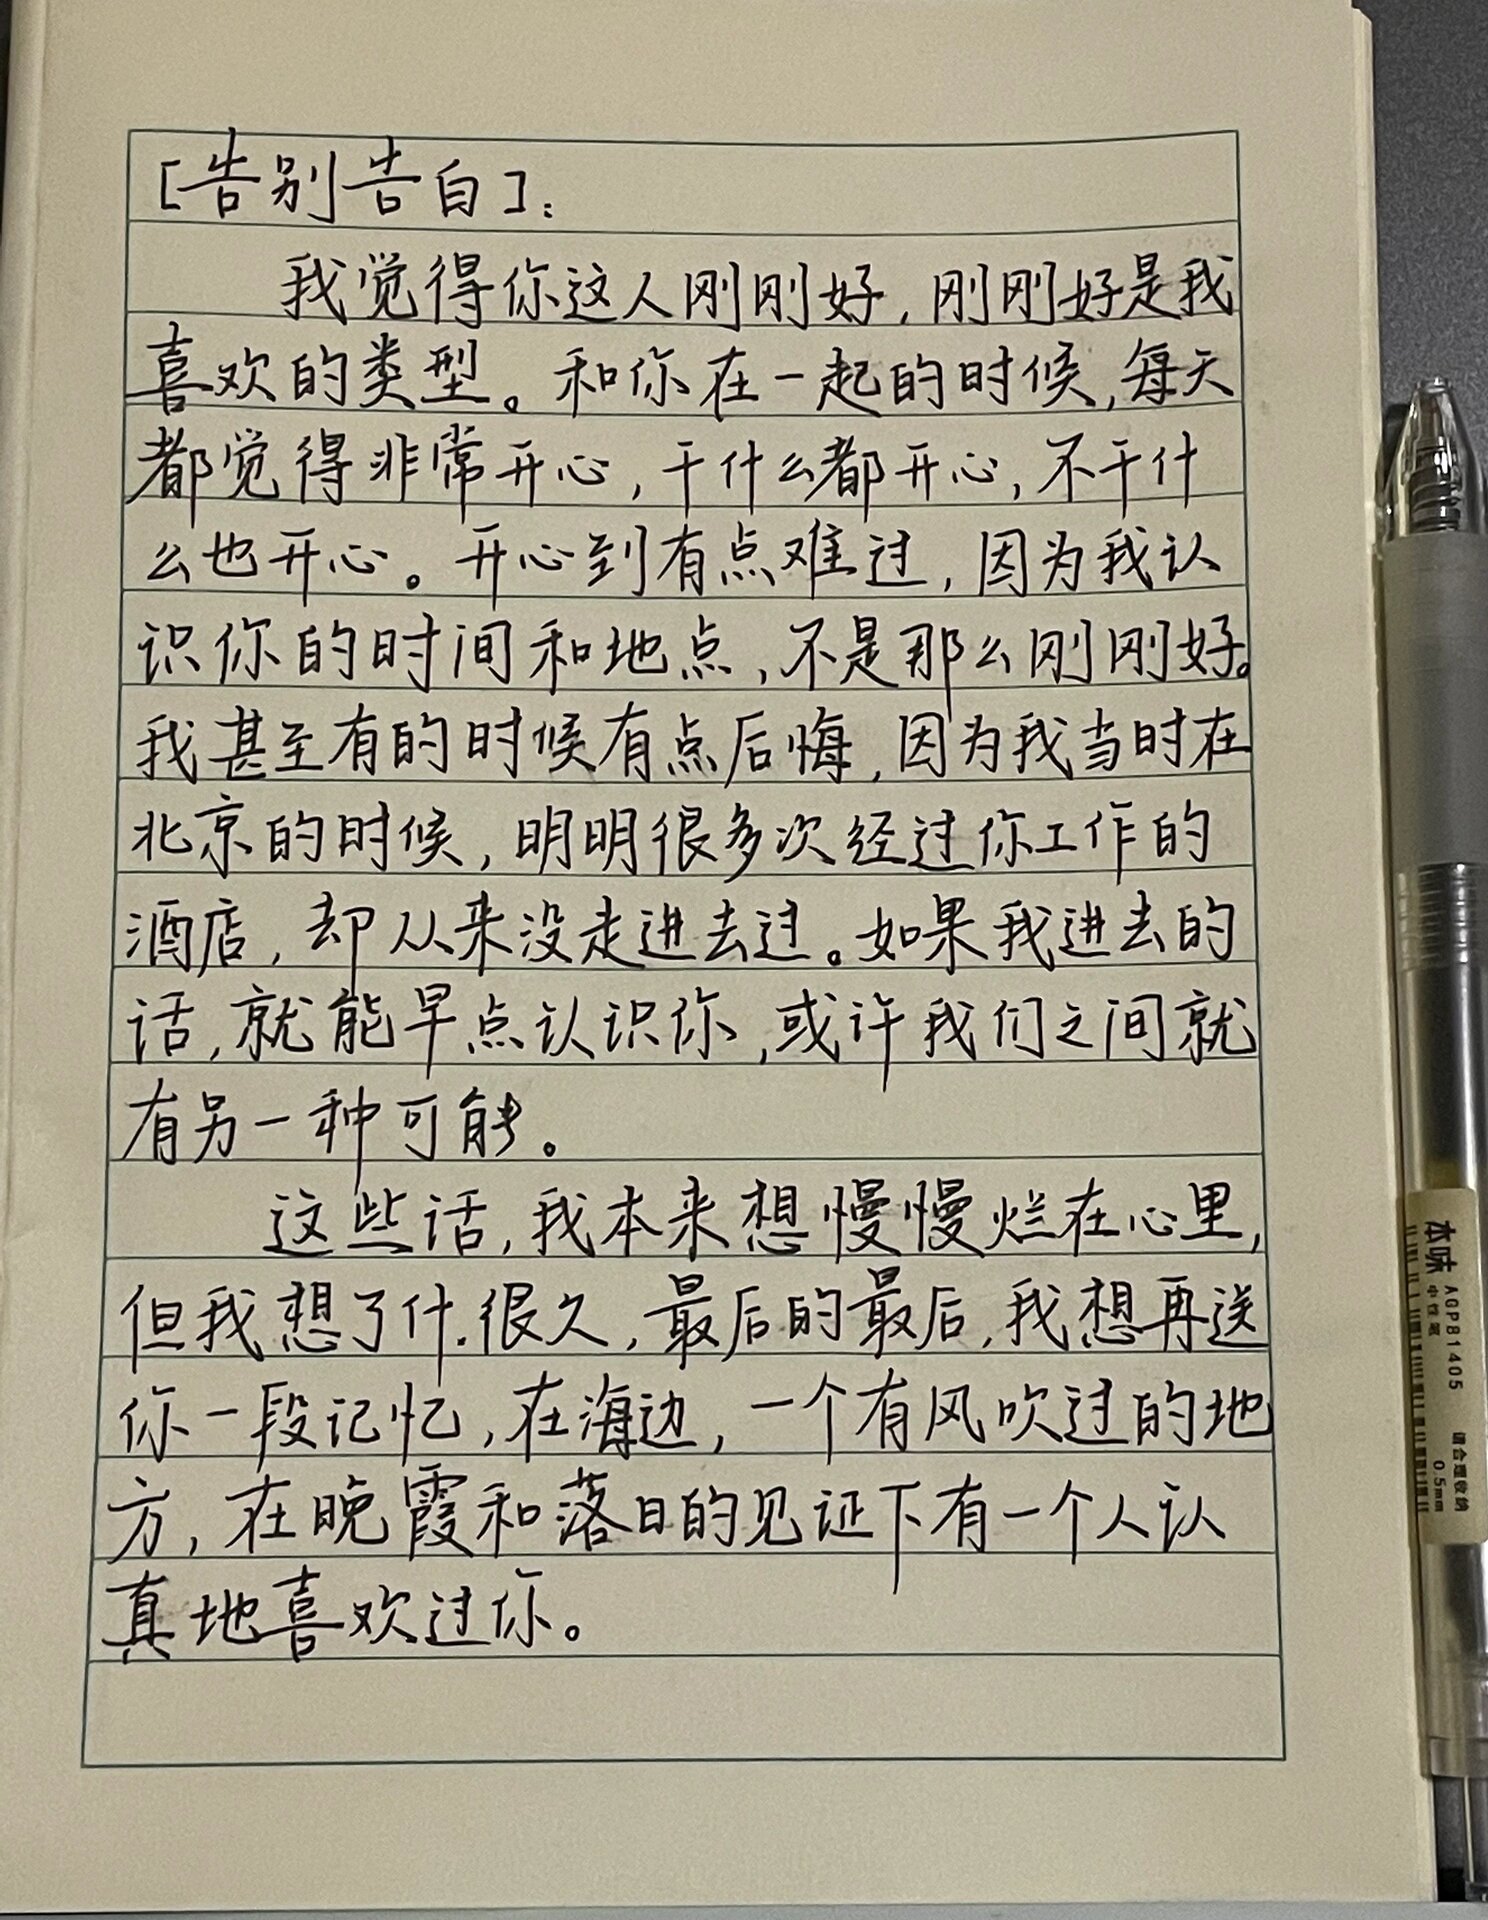 [告别告白]：
我觉得你这人刚刚好，刚刚好是我
喜欢的类型。和你在一起的时候，每天
都觉得非常开心，干什么都开心，不干什
么也开心。开心到有点难过，因为我认
识你的时间和地点，不是那么刚刚好。
我甚至有的时候有点后悔，因为我当时在
北京的时候，明明很多次经过你工作的
酒店，却从来没走进去过。如果我进去的
话，就能早点认识你，或许我们之间就
有另一种可能。
这些话，我本来想慢慢烂在心里，
但我想了什.很久，最后的最后，我想再送
你一段记忆，在海边，一个有风吹过的地
方，在晚霞和落日的见证下有一个人认
真地喜欢过你。
本味 AGP81405
中性笔 0.5mm
请合理收纳